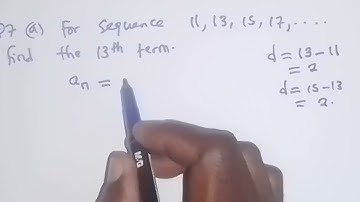 Q7 (a) For sequence 11, 13, 15, 17, ....
find the 13th term.
d = 13 - 11
= 2
d = 15 - 13
= 2.
aₙ =
M&G